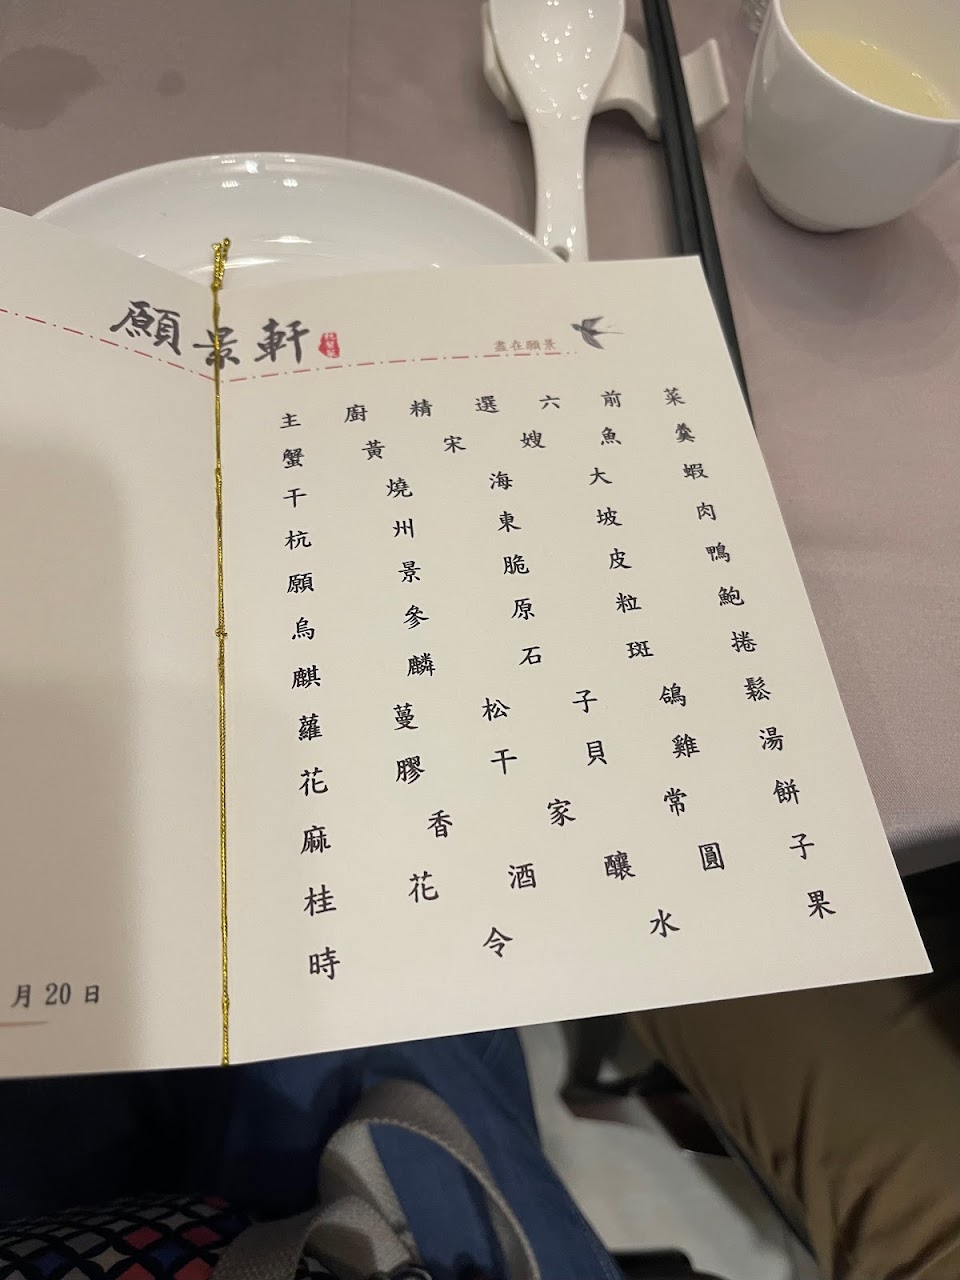 願景軒
盡在願景
主廚精選六前菜
蟹黃宋嫂魚羹
干燒海大蝦
杭州東坡肉
願景脆皮鴨
烏參原粒鮑
麒麟石斑捲
蘿蔓松子鴿鬆
花膠干貝雞湯
麻香家常餅
桂花酒釀圓子
時令水果
月 20 日